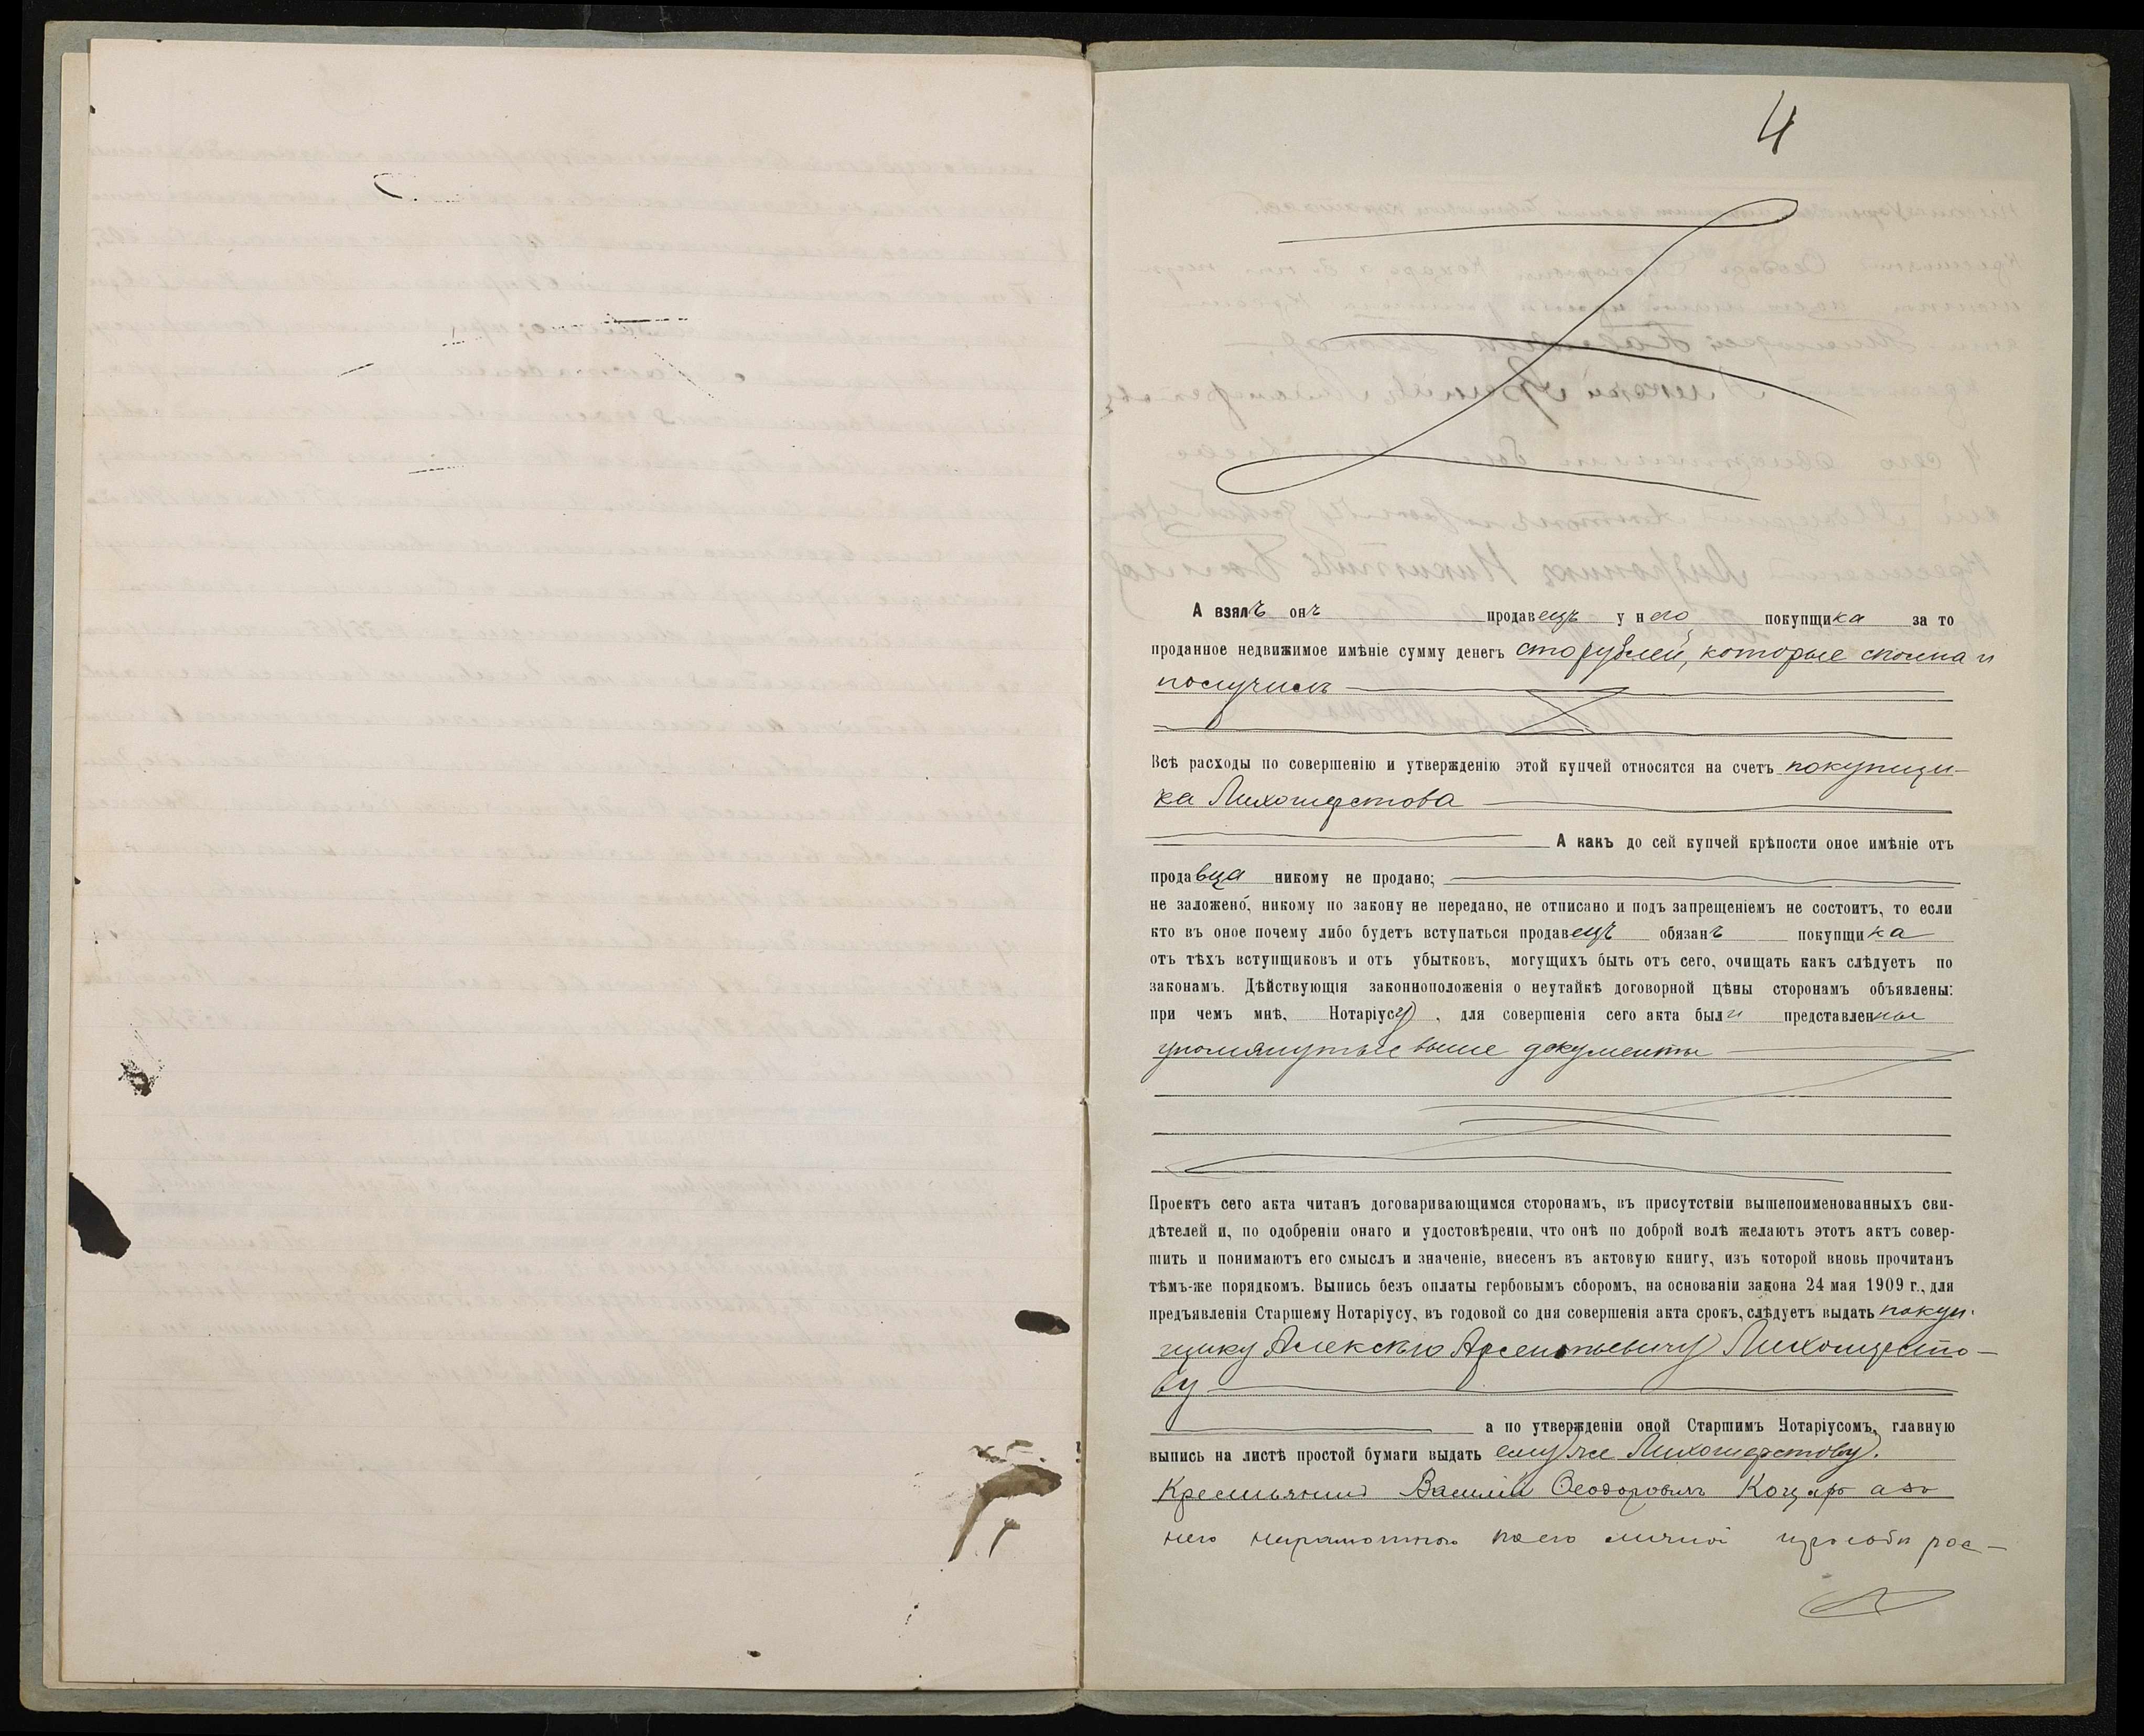 4
А взялъ онъ продавецъ у него покупщика за то
проданное недвижимое имѣніе сумму денегъ сто рублей, которые сполна и
получилъ
Всѣ расходы по совершенію и утвержденію этой купчей относятся на счетъ покупщи-
ка Лихошерстова
А какъ до сей купчей крѣпости оное имѣніе отъ
продавца никому не продано;
не заложено, никому по закону не передано, не отписано и подъ запрещеніемъ не состоитъ, то если
кто въ оное почему либо будетъ вступаться продавецъ обязанъ покупщика
отъ тѣхъ вступщиковъ и отъ убытковъ, могущихъ быть отъ сего, очищать какъ слѣдуетъ по
законамъ. Дѣйствующія законноположенія о неутайкѣ договорной цѣны сторонамъ объявлены:
при чемъ мнѣ, Нотаріусу, для совершенія сего акта были представлены
упомянутые выше документы
Проектъ сего акта читанъ договаривающимся сторонамъ, въ присутствіи вышепоименованныхъ сви-
дѣтелей и, по одобреніи онаго и удостовѣреніи, что онѣ по доброй волѣ желаютъ этотъ актъ совер-
шить и понимаютъ его смыслъ и значеніе, внесенъ въ актовую книгу, изъ которой вновь прочитанъ
тѣмъ-же порядкомъ. Выпись безъ оплаты гербовымъ сборомъ, на основаніи закона 24 мая 1909 г., для
предъявленія Старшему Нотаріусу, въ годовой со дня совершенія акта срокъ, слѣдуетъ выдать покуп-
щику Алексѣю Арсентьевичу Лихошерсто-
ву
а по утвержденіи оной Старшимъ Нотаріусомъ, главную
выпись на листѣ простой бумаги выдать ему же Лихошерстову.
Крестьянинъ Василій Ѳеодоровичъ Коцарь а за
него неграмотнаго по его личной просьбѣ рос-